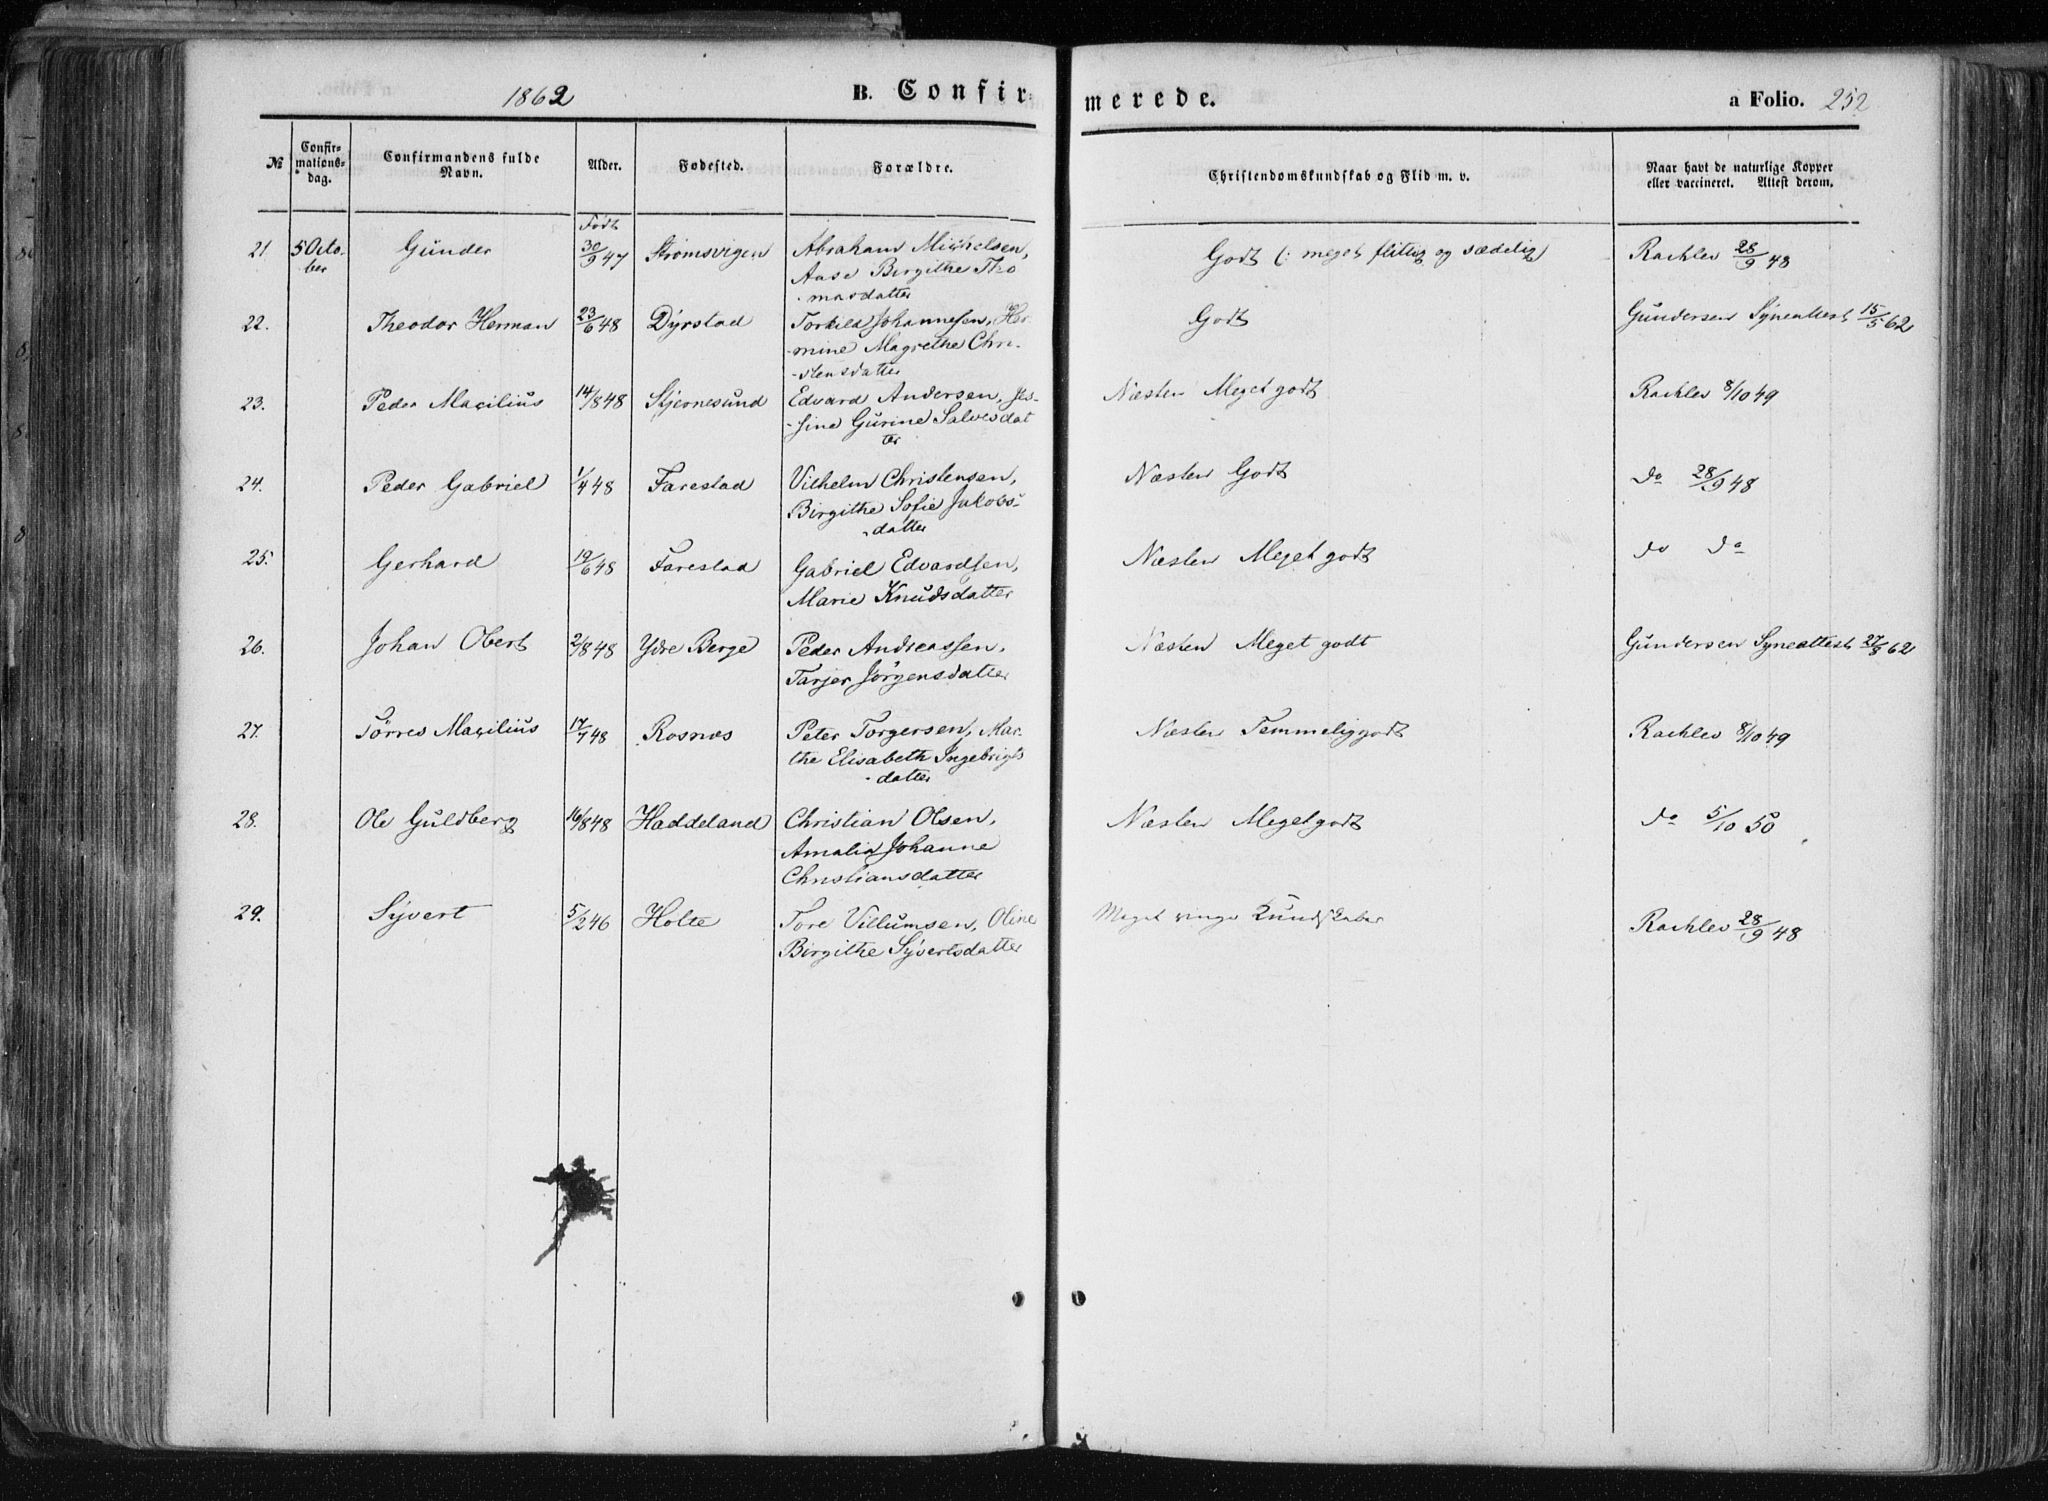 1862 B. Confirmerede. a Folio. 252
№ Confirmations-dag. Confirmandens fulde Navn. Alder. Fødested. Forældre. Christendomskundskab og Flid m. v. Naar havt de naturlige Kopper eller vaccineret. Attest derom.
Født
21 5 Octo- Günder 30/9 47 Strømsvigen Abraham Michelsen, Godt (: meget flittig og sædelig) Rachlev 28/9 48
ber Aase Birgithe Tho
-masdatter
22. Theodor Herman 23/6 48 Dÿrstad Torkild Johannesen, Her- Godt Gündersen Sÿneattest 15/5 62
-mine Magrethe Chri-
-stensdatter
23. Peder Maxilius 14/8 48 Stjernesund Edvard Andersen, Jes- Næsten Meget godt Rachlev 8/10 49
-sine Gürine Salvesdat
ter
24. Peder Gabriel 1/4 48 Farestad Vilhelm Christensen, Næsten Godt do 28/9 48
Birgithe Sofie Jakobs-
-datter
25. Gerhard 19/6 48 Farestad Gabriel Edvardsen, Næsten Meget godt do do
Marie Knüdsdatter
26. Johan Obert 2/8 48 Ydre Berge Peder Andreassen, Næsten Meget godt Gündersen Syneattest 27/8 62
Tarjer Jörgensdatter
27. Törres Maxilius 17/7 48 Rosnæs Peter Torgersen, Mar- Næsten Temmelig godt Rachlev 8/10 49
the Elisabeth Ingebrigts
-datter
28. Ole Güldberg 16/8 48 Haddeland Christian Olsen, Næsten Meget godt do 5/10 50
Amalia Johanne
Christiansdatter
29. Sÿvert 5/2 46 Holte Tore Villümsen, Oline Meget ringe Kündskaber Rachlev 28/9 48
Birgithe Sÿvertsdatter